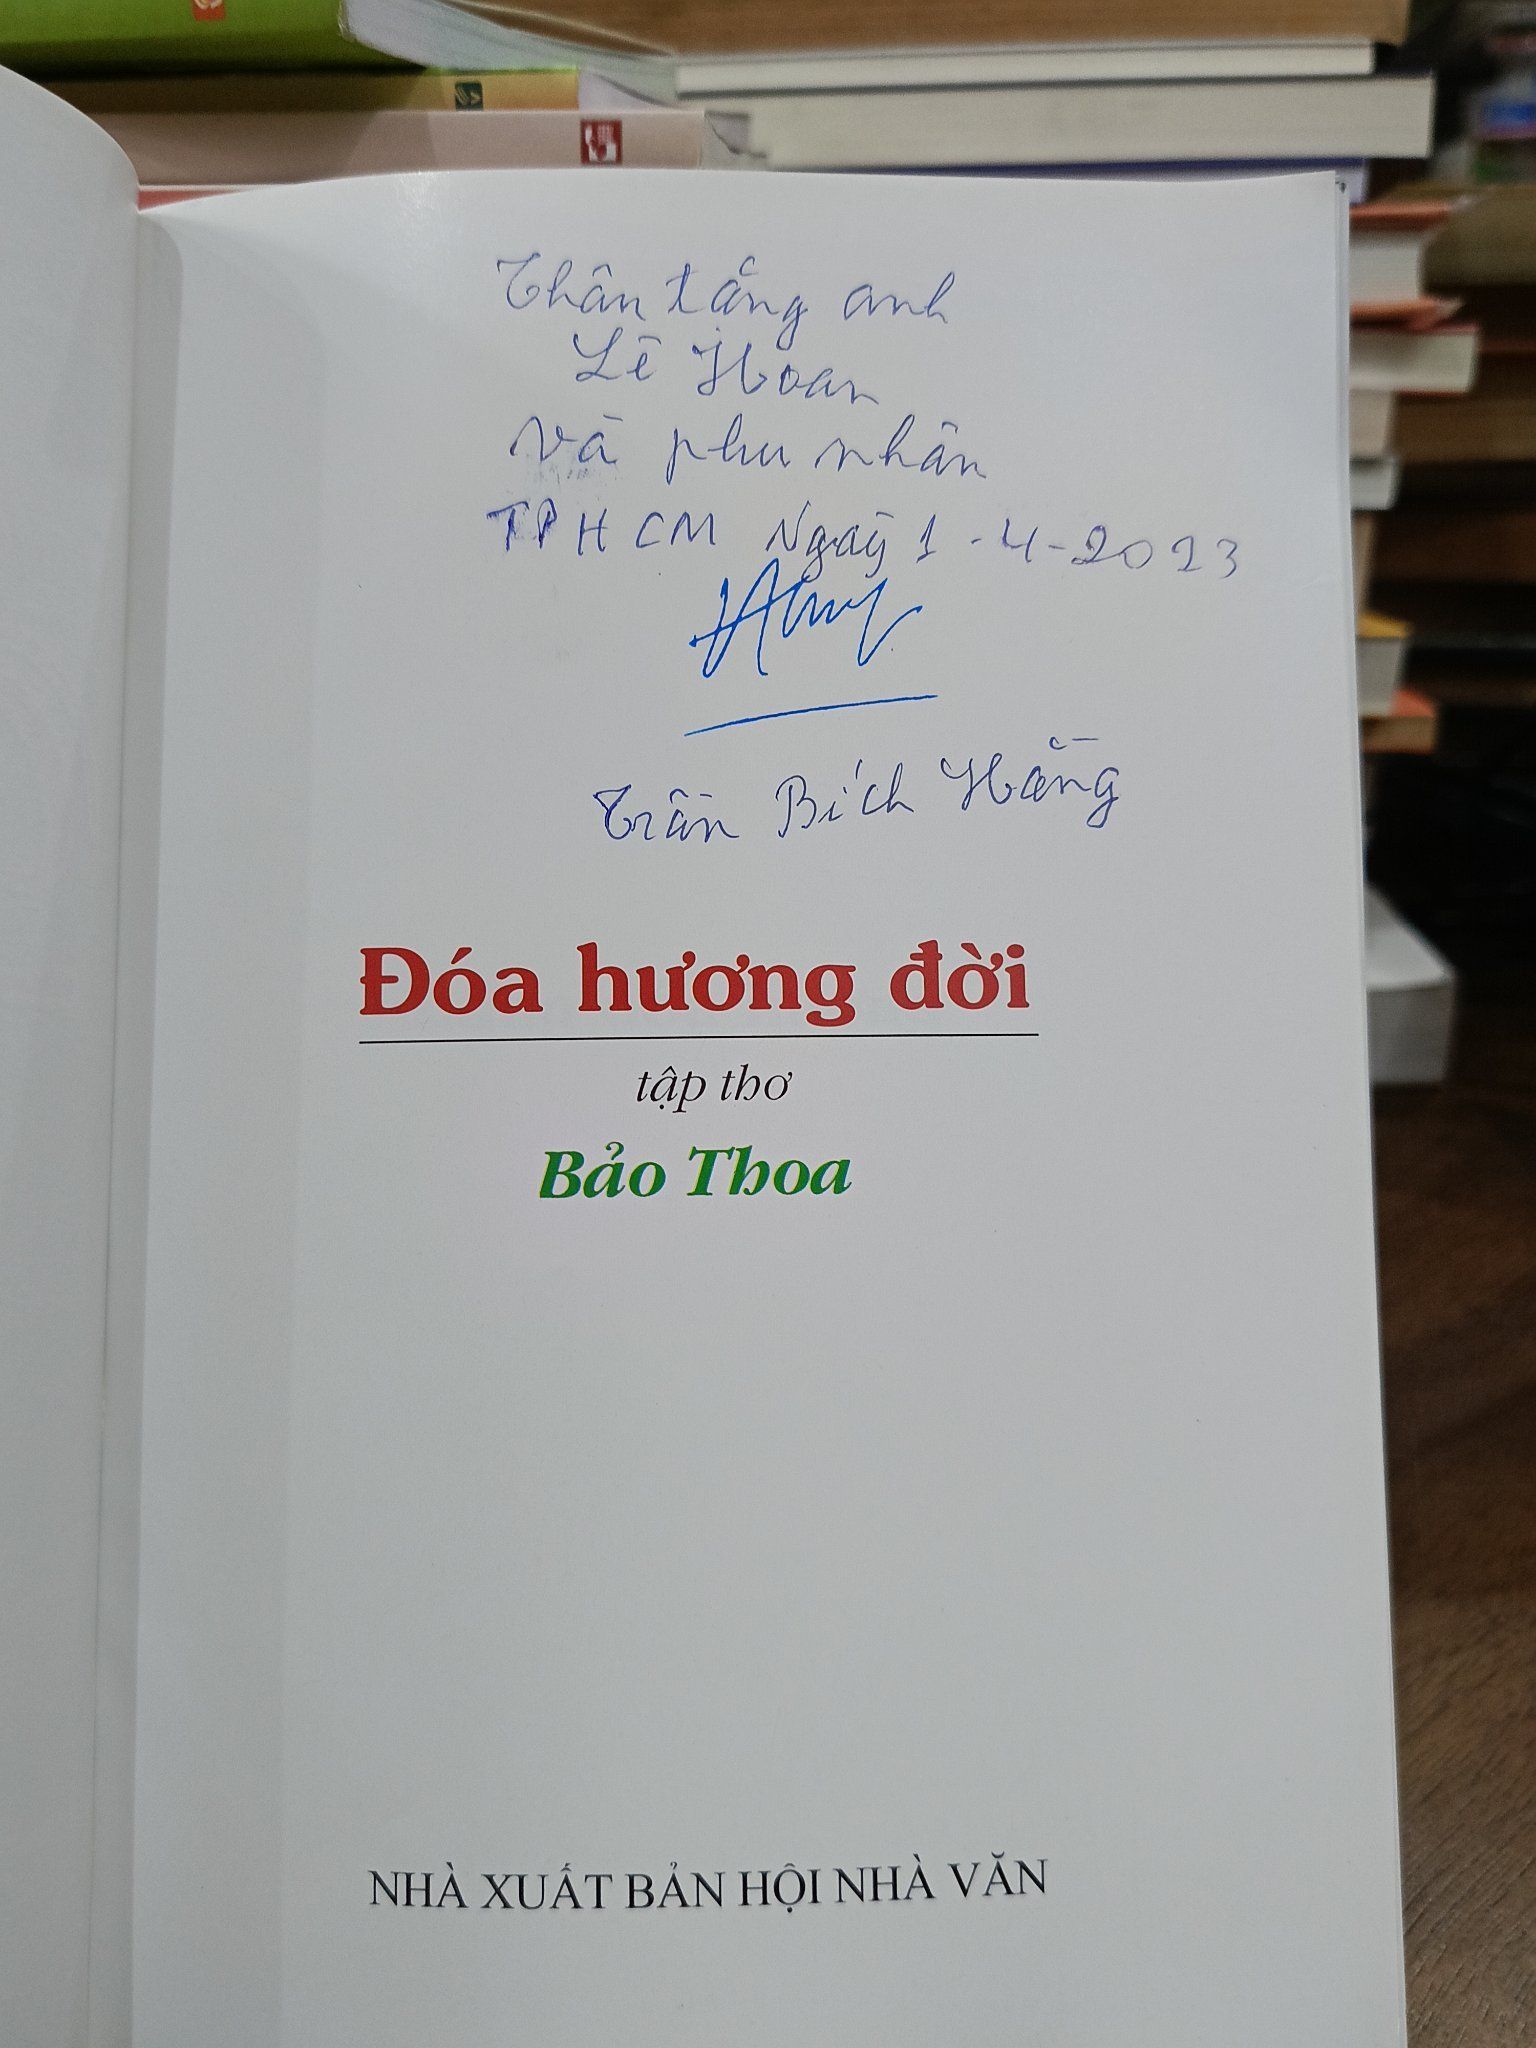 Thân tặng anh
Lê Hoan
và phu nhân
TPHCM Ngày 1-4-2023
Trần Bích Hằng
Đóa hương đời
tập thơ
Bảo Thoa
NHÀ XUẤT BẢN HỘI NHÀ VĂN